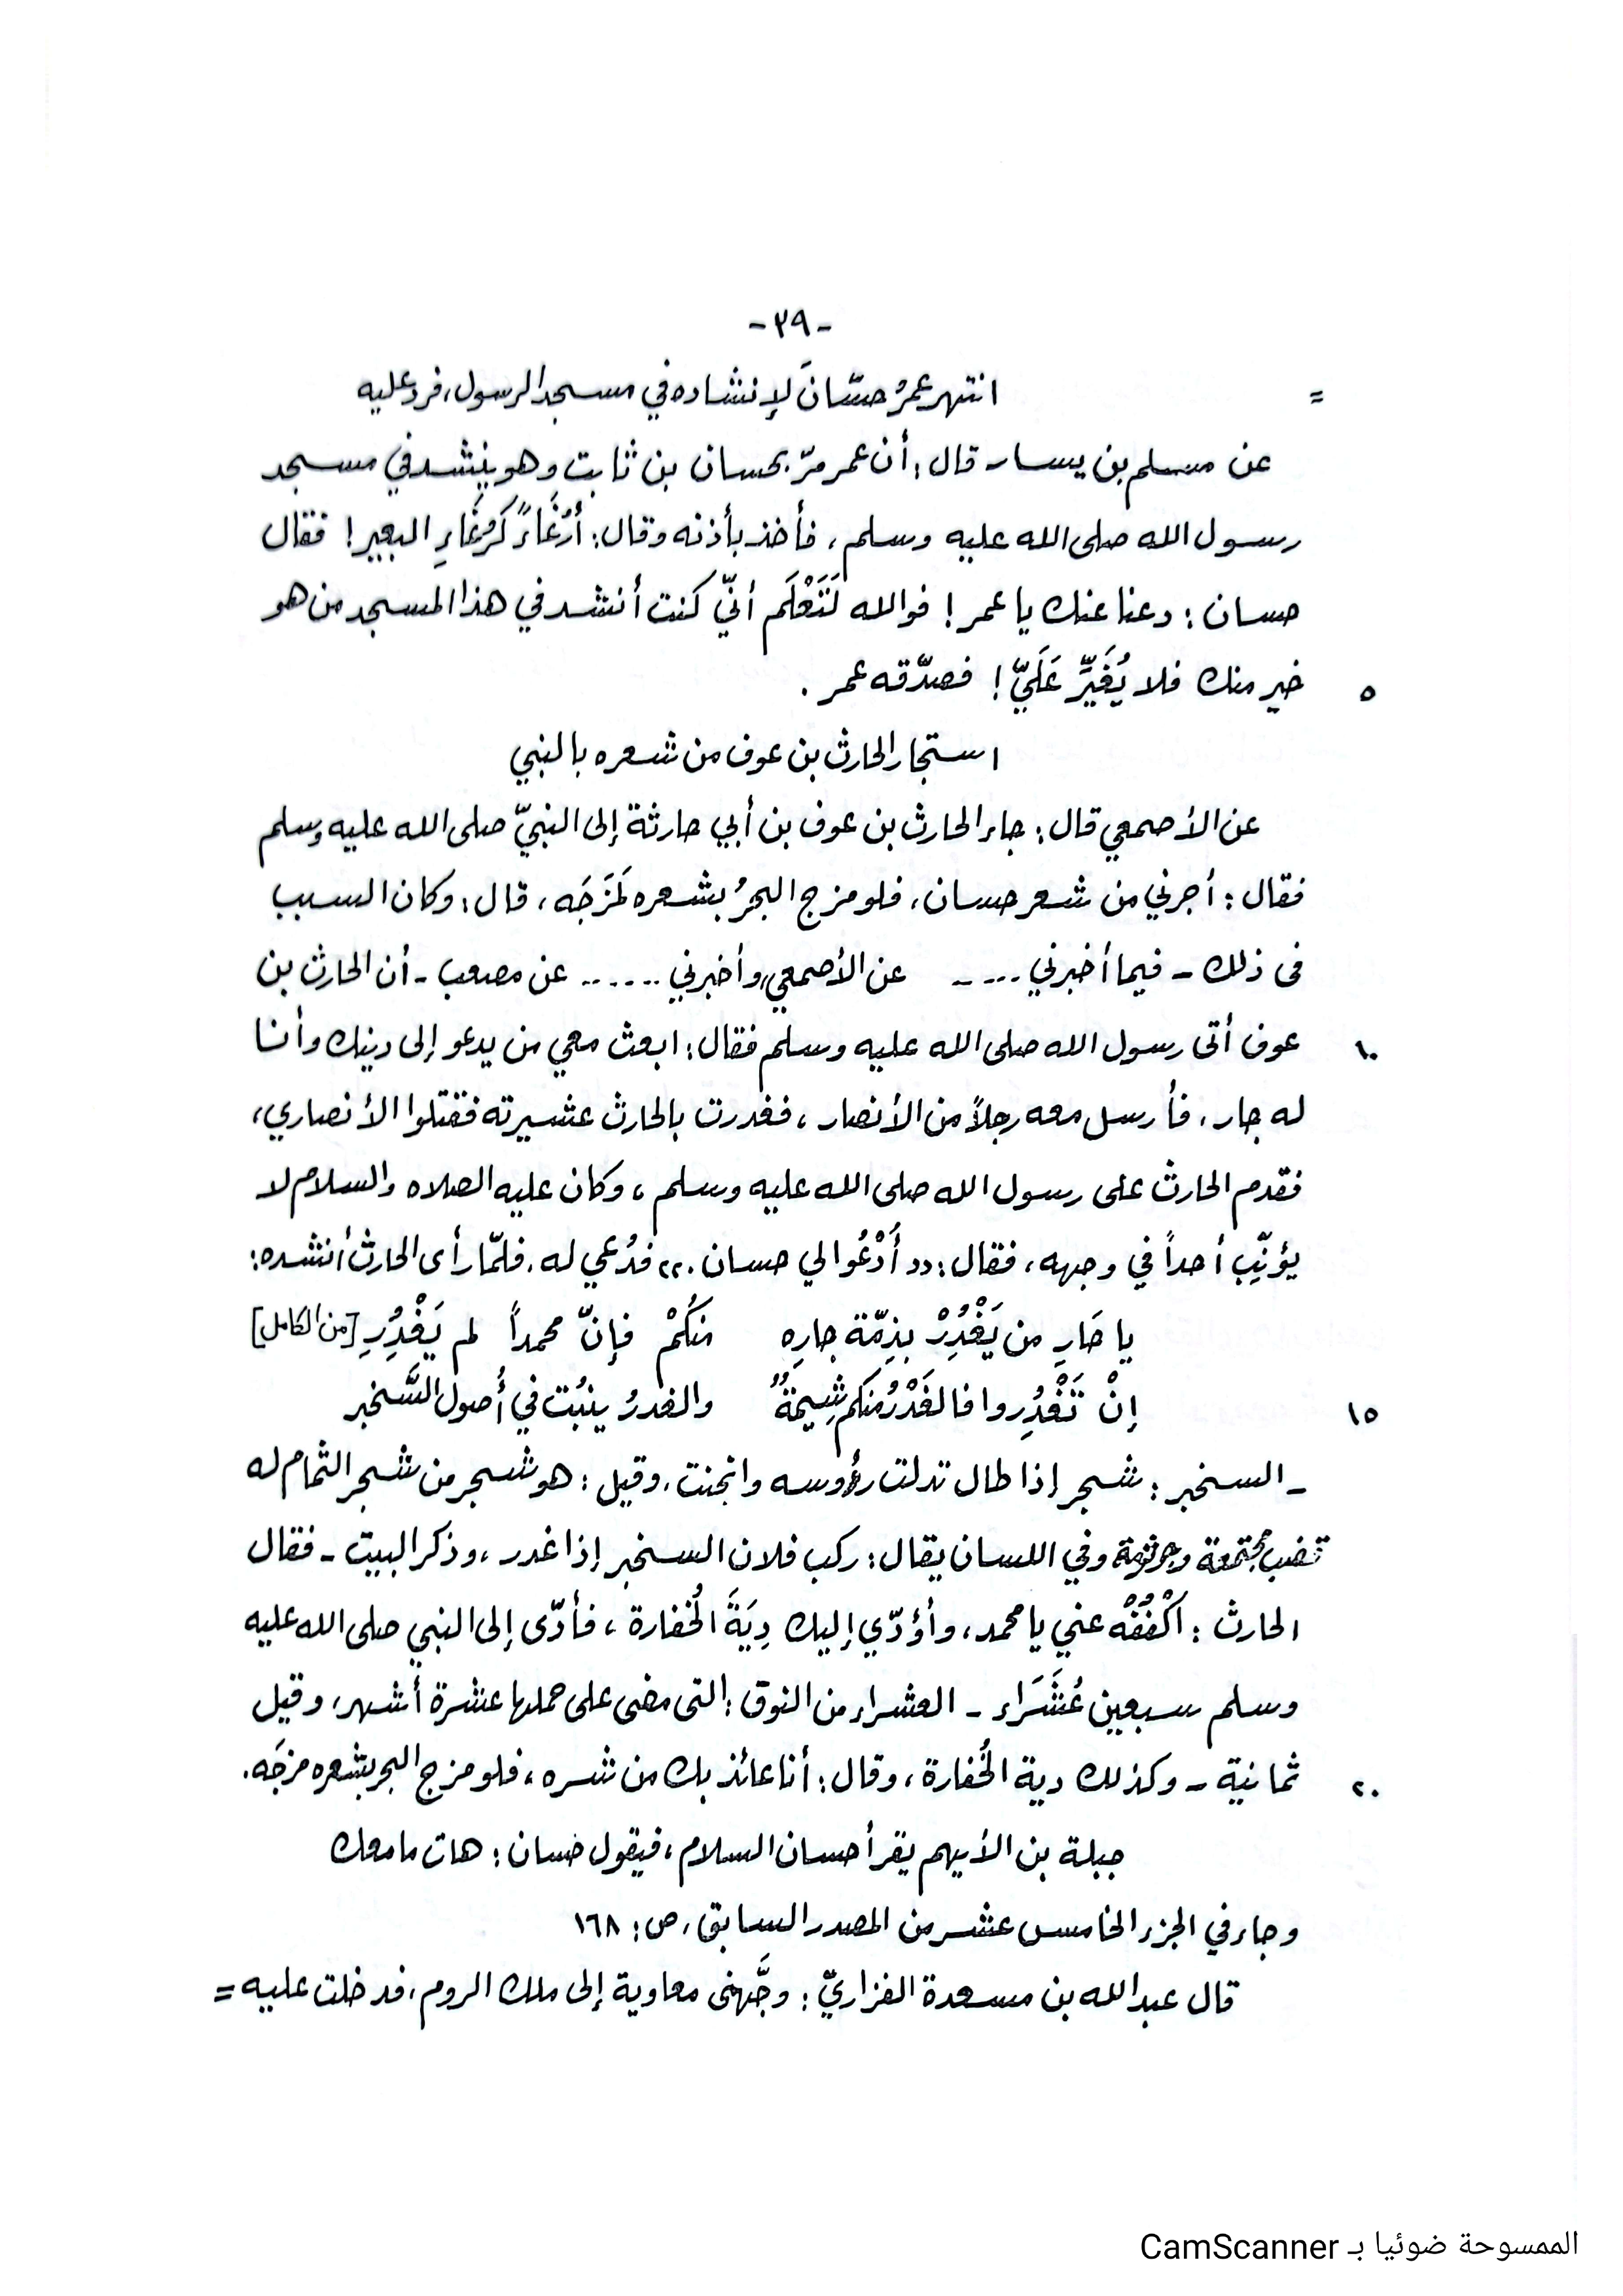 -٣٩-
= انتهر عمرُ حسّانَ لإنشاده في مسجد الرسول، فرد عليه
عن مسلم بن يسار قال: أن عمر مرّ بحسان بن ثابت وهو ينشد في مسجد
رسول الله صلى الله عليه وسلم، فأخذ بأذنه وقال: أَرُغَاءً كَرُغَاءِ البعير! فقال
حسان: دعنا عنك يا عمر! فوالله لَتَعْلَم أنّي كنت أنشد في هذا المسجد من هو
٥ خير منك فلا يُغَيِّر عَلَيّ! فصدّقه عمر.
استجار الحارث بن عوف من شعره بالنبي
عن الأصمعي قال: جاء الحارث بن عوف بن أبي حارثة إلى النبيّ صلى الله عليه وسلم
فقال: أجرني من شعر حسان، فلو مزج البحرُ بشعره لَمَزَجَه، قال: وكان السبب
فى ذلك - فيما أخبرني .... - عن الأصمعي، وأخبرني ...... عن مصعب - أن الحارث بن
١٠ عوف أتى رسول الله صلى الله عليه وسلم فقال: ابعث معي من يدعو إلى دينك وأنا
له جار، فأرسل معه رجلاً من الأنصار، فغدرت بالحارث عشيرته فقتلوا الأنصاري،
فقدم الحارث على رسول الله صلى الله عليه وسلم، وكان عليه الصلاه والسلام لا
يؤنِّب أحداً في وجهه، فقال: ‹‹ أُدْعُوا لي حسان. ›› فدُعي له، فلمّا رأى الحارث أنشده:
يا حَارِ من يَغْدُِرْ بذِمّة جارِه منكُمْ فإنّ محمداً لم يَغْدُِرِ [من الكامل]
١٥ إنْ تَغْدُِروا فالغَدْرُ منكم شِيمَةٌ والغدرُ ينبُت في أُصول السَّخبر
- السخبر: شجر إذا طال تدلت رؤوسه وانحنت، وقيل: هو شجر من شجر الثمام له
قضب مجتمعة وجرثومة وفي اللسان يقال: ركب فلان السخبر إذا غدر، وذكر البيت - فقال
الحارث: اكْفُفْه عني يا محمد، وأؤدّي إليك دِيَةَ الخُفارة، فأدّى إلى النبي صلى الله عليه
وسلم سبعين عُشَرَاء - العشراء من النوق: التى مضى على حملها عشرة أشهر، وقيل
٢٠ ثمانية - وكذلك دية الخُفارة، وقال: أنا عائذ بك من شره، فلو مزج البحر بشعره مزجَه.
جبلة بن الأيهم يقرأ حسان السلام، فيقول حسان: هات ما معك
وجاء في الجزء الخامس عشر من المصدر السابق، ص: ١٦٨
قال عبد الله بن مسعدة الفزاريّ: وجَّهنى معاوية إلى ملك الروم، فدخلت عليه =
الممسوحة ضوئيا بـ CamScanner